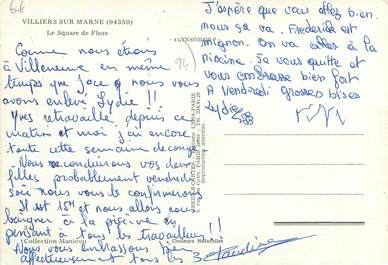 64
VILLIERS SUR MARNE (94350)
Le Square de Flore
94
Comme nous étions
à Villeneuve en même
temps que Joce et nous vous
avons enlevé Lydie !!
Yves retravaille depuis ce
matin et moi j'ai encore
toute cette semaine de congé.
Nous reconduirons vos deux
filles probablement vendredi
soir nous vous le confirmerons
Il est 15H et nous allons nous
baigner à la piscine en
pensant à tous les travailleurs !!
Nous vous embrassons bien
affectueusement tous les 3
Collection Manicou
Couleurs Naturelles
J'espère que vous allez bien.
nous ça va. Frédérick est
mignon. On va aller à la
piscine. Je vous quitte et
vous embrasse bien fort
A vendredi grosses bises
Lydie